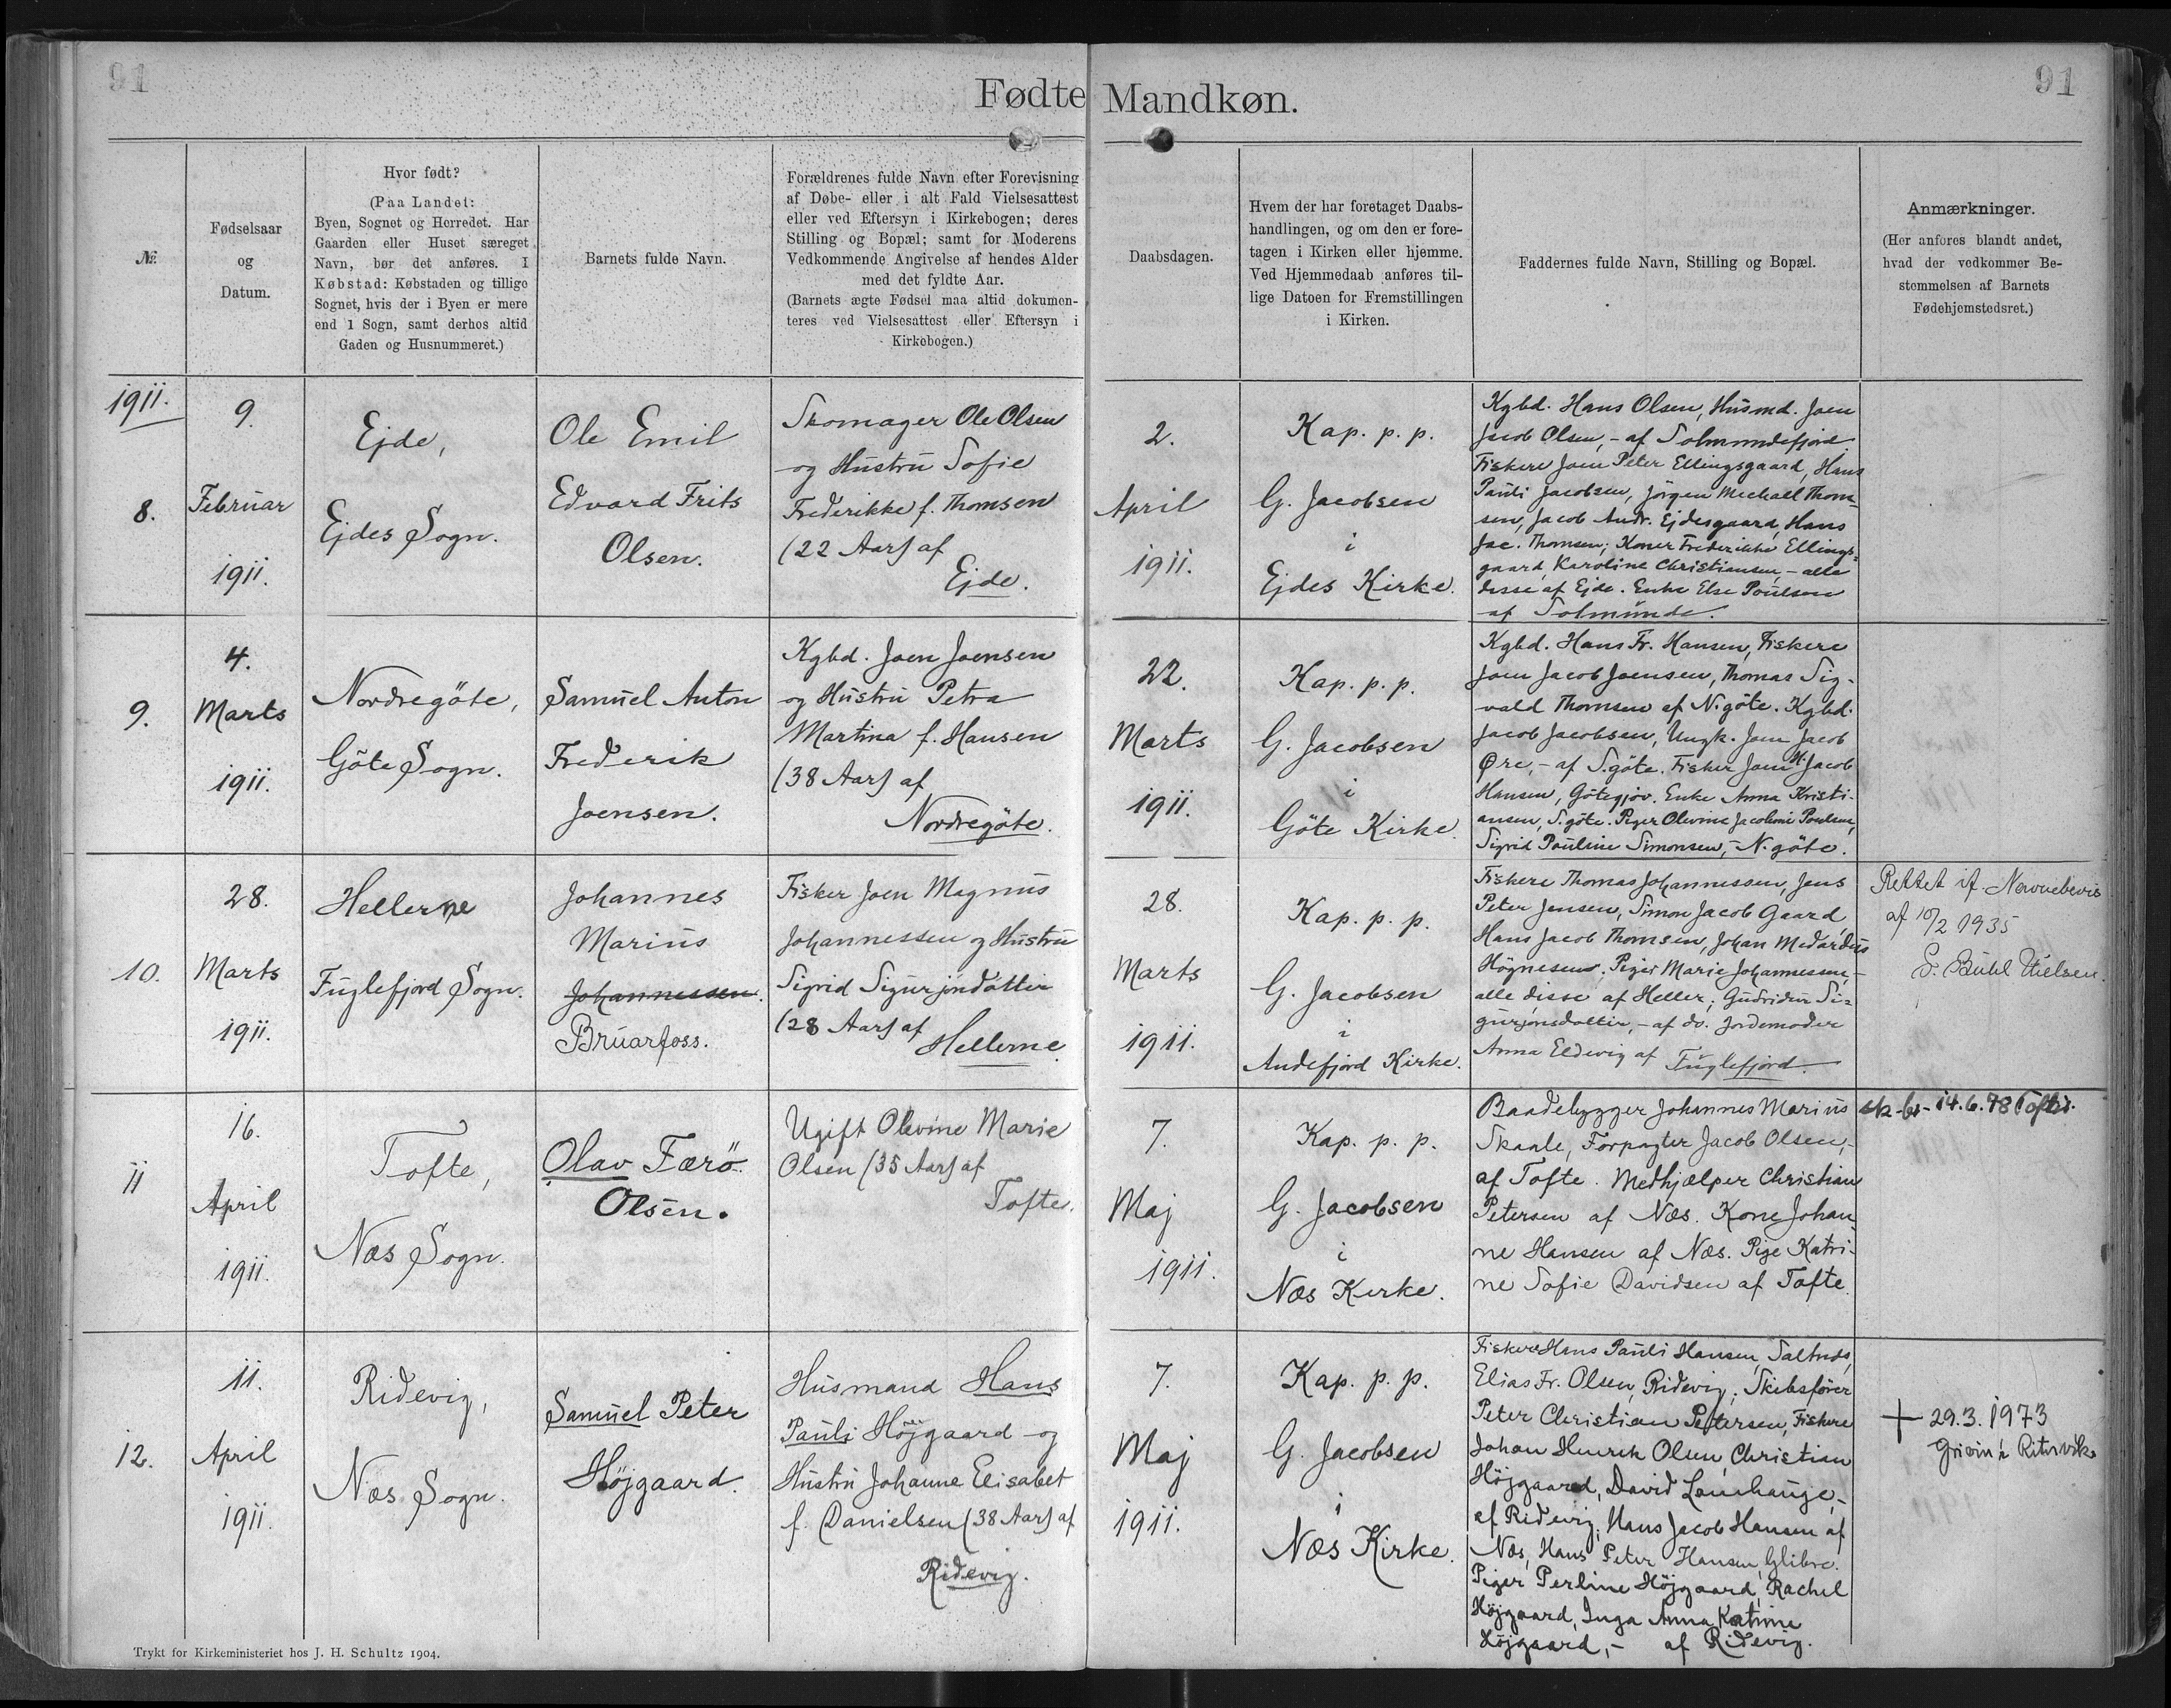 91
91
Fødte Mandkøn.
№.
Fødselsaar
og
Datum.
Hvor født?
(Paa Landet:
Byen, Sognet og Herredet. Har
Gaarden eller Huset særeget
Navn, bør det anføres. I
Købstad: Købstaden og tillige
Sognet, hvis der i Byen er mere
end 1 Sogn, samt derhos altid
Gaden og Husnummeret.)
Barnets fulde Navn.
Forældrenes fulde Navn efter Forevisning
af Døbe- eller i alt Fald Vielsesattest
eller ved Eftersyn i Kirkebogen; deres
Stilling og Bopæl; samt for Moderens
Vedkommende Angivelse af hendes Alder
med det fyldte Aar.
(Barnets ægte Fødsel maa altid dokumen-
teres ved Vielsesattest eller Eftersyn i
Kirkebogen.)
Daabsdagen.
Hvem der har foretaget Daabs-
handlingen, og om den er fore-
tagen i Kirken eller hjemme.
Ved Hjemmedaab anføres til-
lige Datoen for Fremstillingen
i Kirken.
Faddernes fulde Navn, Stilling og Bopæl.
Anmærkninger.
(Her anføres blandt andet,
hvad der vedkommer Be-
stemmelsen af Barnets
Fødehjemstedsret.)
1911.
8.
9.
Februar
1911.
Ejde,
Ejdes Sogn.
Ole Emil
Edvard Frits
Olsen.
Skomager Ole Olsen
og Hustru Sofie
Frederikke f. Thomsen
(22 Aar) af
Ejde.
2.
April
1911.
Kap. p. p.
G. Jacobsen
i
Ejdes Kirke.
Kgbd. Hans Olsen, Husmd. Joen
Jacob Olsen, - af Solmundefjord
Fiskere Joen Peter Ellingsgaard, Hans
Pauli Jacobsen, Jörgen Michael Thom-
sen, Jacob Andr. Ejdesgaard, Hans
Jac. Thomsen; Koner Frederikke Ellings-
gaard, Karoline Christiansen, - alle
disse af Ejde. Enke Else Poulsen
af Solmunde.
9.
4.
Marts
1911.
Nordregöte,
Göte Sogn.
Samuel Anton
Frederik
Joensen.
Kgbd. Joen Joensen
og Hustru Petra
Martina f. Hansen
(38 Aar) af
Nordregöte.
22.
Marts
1911.
Kap. p. p.
G. Jacobsen
i
Göte Kirke.
Kgbd. Hans Fr. Hansen, Fiskere
Joen Jacob Joensen, Thomas Sig-
vald Thomsen af N.göte. Kgbd.
Jacob Jacobsen, Ungk. Joen Jacob
Øre, - af S.göte. Fisker Joen H. Jacob
Hansen, Götegjov. Enke Anna Kristi-
ansen, S.göte. Piger Olevine Jacobine Poulsen,
Sigrid Pauline Simonsen, - N.göte.
10.
28.
Marts
1911.
Hellerne
Fuglefjord Sogn.
Johannes
Marius
Johannessen.
Bruarfoss.
Fisker Joen Magnus
Johannessen og Hustru
Sigrid Sigurjónsdóttir
(28 Aar) af
Hellerne.
28.
Marts
1911.
Kap. p. p.
G. Jacobsen
i
Andefjord Kirke.
Fiskere Thomas Johannessen, Jens
Peter Jensen, Simon Jacob Gaard,
Hans Jacob Thomsen, Johan Medardus
Högnesen. Piger Marie Johannessen, -
alle disse af Heller; Gudridur Si-
gurjónsdóttir, - af do. Jordemoder
Anna Eldevig af Fuglefjord.
Rettet if. Navnebevis
af 10/2 1935
S. Buhl Nielsen.
11
16.
April
1911.
Tofte,
Næs Sogn.
Olav Færö
Olsen.
Ugift Olevine Marie
Olsen (35 Aar) af
Tofte.
7.
Maj
1911.
Kap. p. p.
G. Jacobsen
i
Næs Kirke.
Baadebygger Johannes Marius
Skaale, Forpagter Jacob Olsen, -
af Tofte. Medhjælper Christian
Petersen af Næs. Kone Johan-
ne Hansen af Næs. Pige Katri-
ne Sofie Davidsen af Tofte.
14.6.48
12.
11.
April
1911
Ridevig,
Næs Sogn.
Samuel Peter
Höjgaard.
Husmand Hans
Pauli Höjgaard og
Hustru Johanne Elisabet
f. Danielsen (38 Aar) af
Ridevig.
7.
Maj
1911.
Kap. p. p.
G. Jacobsen
i
Næs Kirke.
Fiskere Hans Pauli Hansen, Saltnæs,
Elias Fr. Olsen, Ridevig; Skibsfører
Peter Christian Petersen, Fiskere
Johan Henrik Olsen, Christian
Höjgaard, David Lamhauge, -
af Ridevig; Hans Jacob Hansen af
Næs, Hans Peter Hansen, Glibre.
Piger Perline Höjgaard, Rachel
Höjgaard, Inga Anna Katrine
Höjgaard, - af Ridevig.
+ 29.3.1973
Trykt for Kirkeministeriet hos J. H. Schultz 1904.